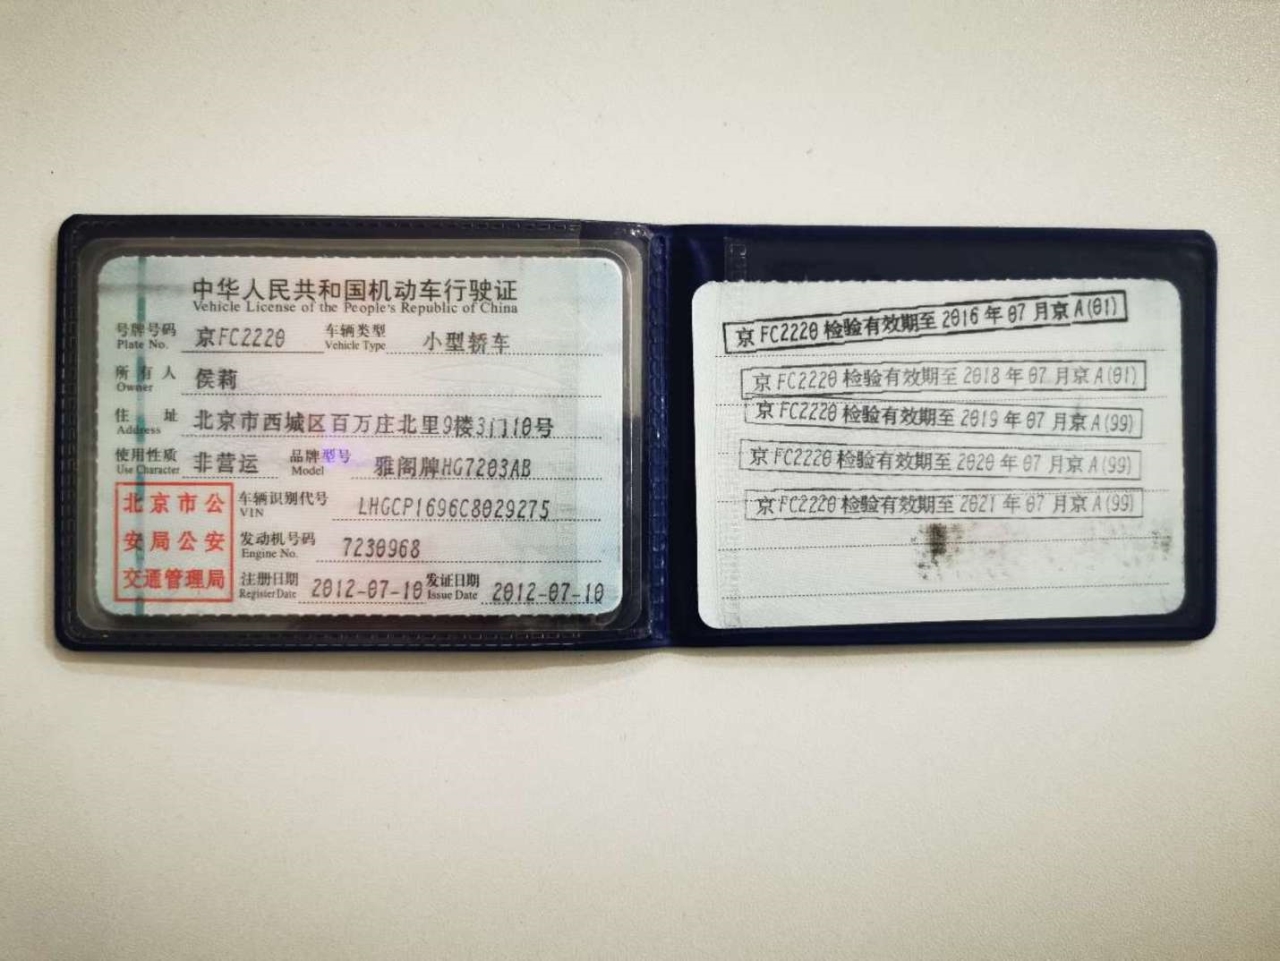 中华人民共和国机动车行驶证
Vehicle License of the People's Republic of China
号牌号码 京FC2220 车辆类型 小型轿车
Plate No. Vehicle Type
所有人 侯莉
Owner
住址 北京市西城区百万庄北里9楼3门10号
Address
使用性质 非营运 品牌型号 雅阁牌HG7203AB
Use Character Model
北京市公安局公安交通管理局
车辆识别代号 LHGCP1696C8029275
VIN
发动机号码 7230968
Engine No.
注册日期 2012-07-10 发证日期 2012-07-10
Register Date Issue Date
京FC2220检验有效期至2016年07月京A(01)
京FC2220检验有效期至2018年07月京A(01)
京FC2220检验有效期至2019年07月京A(99)
京FC2220检验有效期至2020年07月京A(99)
京FC2220检验有效期至2021年07月京A(99)